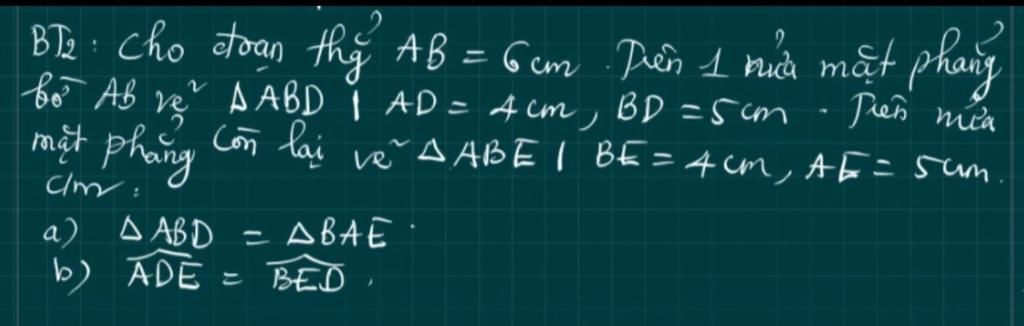 BT2: Cho đoạn thẳng AB = 6cm. Trên 1 nửa mặt phẳng
bờ AB vẽ ΔABD | AD = 4cm, BD = 5cm. Trên nửa
mặt phẳng còn lại vẽ ΔABE | BE = 4cm, AE = 5cm.
c/m:
a) ΔABD = ΔBAE.
b) \widehat{ADE} = \widehat{BED}.